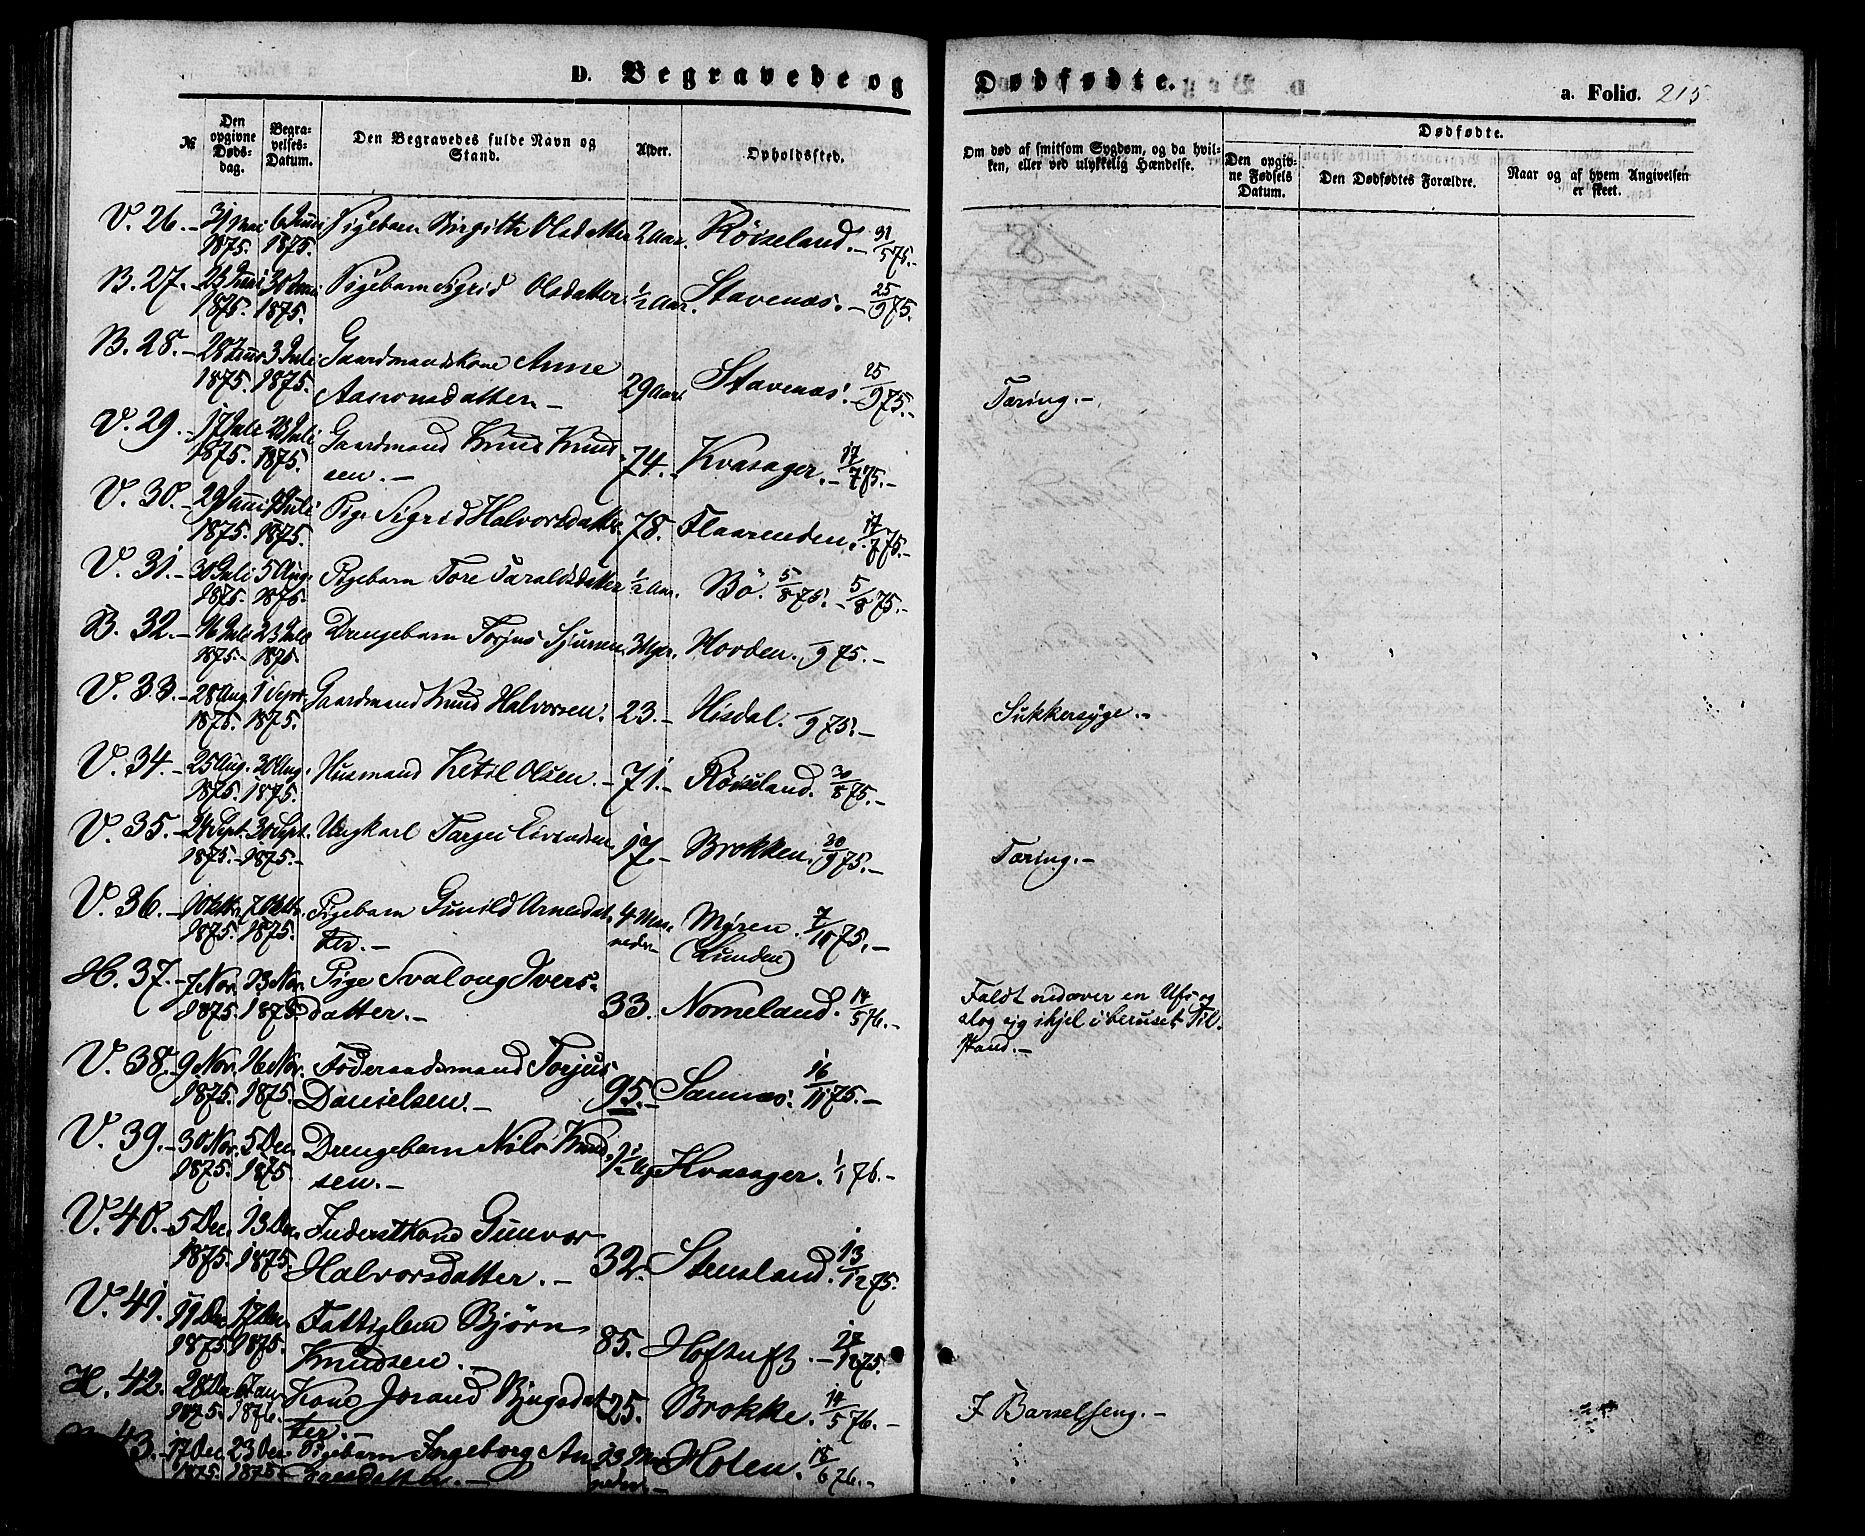 D. Begravede og Dødfødte.
a. Folio. 215
№
Den opgivne Døds-dag.
Begra-velses-Datum.
Den Begravedes fulde Navn og Stand.
Alder.
Opholdssted.
Om død af smitsom Sygdom, og da hvil-ken, eller ved ulykkelig Hændelse.
Dødfødte.
Den opgiv-ne Fødsels Datum.
Den Dødfødtes Forældre.
Naar og af hvem Angivelsen er skeet.
V. 26. 31 Mai 6 Juni Pigebarn Birgith Olsdatter 2 Aar. Röiseland. 31/5 75.
1875. 1875.
B. 27. 23 Juni 30 Juni Pigebarn Sigrid Olsdatter. 1/2 Aar. Stavenæs. 25/9 75.
1875. 1875.
B. 28. 28 Juni 3 Juli Gaardmandskone Anne
1875. 1875. Aasronsdatter. 29 Aar. Stavenæs. 25/9 75. Tæring.
V. 29. 17 Juli 23 Juli Gaardmand Knud Knud
1875. 1875. sen. 74. Kvasager. 17/7 75.
V. 30. 29 Juni Juli Pige Sigrid Halvorsdatter. 78. Flaarenden. 17/7 75.
1875. 1875.
V. 31. 30 Juli 5 Aug. Pigebarn Tore Taraldsdatter 1/2 Aar. Bö. 5/8 75. 5/8 75.
1875. 1875.
B. 32. 16 Juli 23 Juli Drengebarn Torjus Sjursen. Horden. /9 75.
1875. 1875
V. 33. 28 Aug. 1 Sept. Gaardmand Knud Halvorsen. 23. Hisdal. /9 75.
1875. 1875. Sukkersyge.
V. 34. 25 Aug. 30 Aug. Husmand Ketil Olsen. 71. Röiseland. 30/8 75.
1875. 1875.
V. 35. 24 Sept. 30 Sept. Ungkarl Targei Eivindsen 17. Brokken. 30/9 75. Tæring.
1875. 1875.
V. 36. 7 Oktbr. Pigebarn Gunild Arnesdat 4 Maa Myren. 7/10 75.
1875. 1875. ter. neder (Lunden)
H. 37. 7 Nov. 13 Nov. Pige Svalaug Ivers
1875. 1875. datter. 33. Nomeland. 14/5 76. Faldt nedover en Ufs og
slog sig ihjel i beruset Til-
stand.
V. 38. 9 Nov. 16 Nov. Föderaadsmand Torjus
1875. 1875. Danielsen. 95. Sannæs. 16/11 75.
V. 39. 30 Nov. 5 Dec. Drengebarn Nils Knud
1875. 1875. sen. Kvasager. 1/1 76.
V. 40. 5 Dec. 13 Dec. Inderstkone Gunvor
1875. 1875. Halvorsdatter. 32. Stensland. 13/12 75.
V. 41. 11 Dec. 17 Dec. Fattiglem Björn
1875. 1875. Knudsen. 85. Hoftuft. /12 75.
H. 42. 28 Dec 6 Jan Kone Jorand Bjugsdat
1875. 1876. ter. 25. Brokke. 14/5 76. I Barselseng.
43. 17 Dec 23 Dec Pigebarn Ingeborg An Holen. 18/6 76.
1875. 1875 neder.